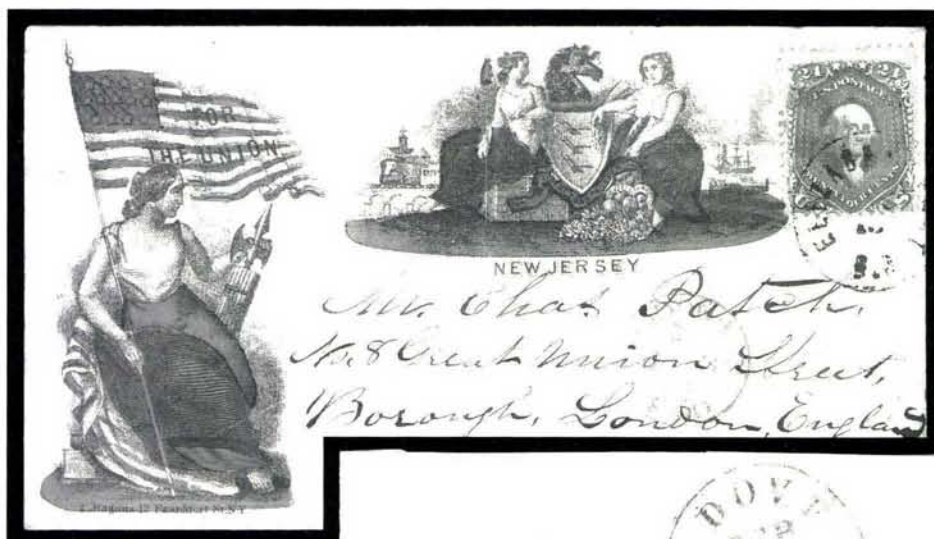 FOR
THE UNION
NEW JERSEY
24 24
U.S. POSTAGE
Mr. Chas. Patch,
No. 8 Great Union Street,
Borough, London, England
Magnus 12 Frankfort St. N.Y.
DOV